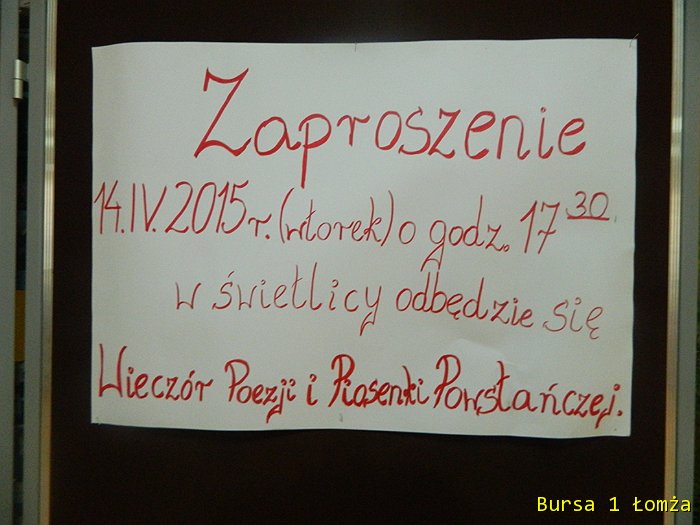 Zaproszenie
14.IV.2015r. (wtorek) o godz. 17 30
w świetlicy odbędzie się
Wieczór Poezji i Piosenki Powstańczej.
Bursa 1 Łomża